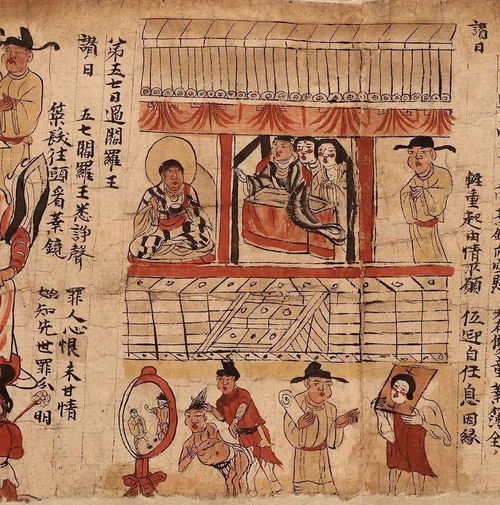 讚曰
輕重起由情所願 低昂自任昔因緣
第五七日過閻羅王
讚曰 五七閻羅王悉諍聲 罪人心恨未甘情
策髮往頭看業鏡 始知先世罪分明